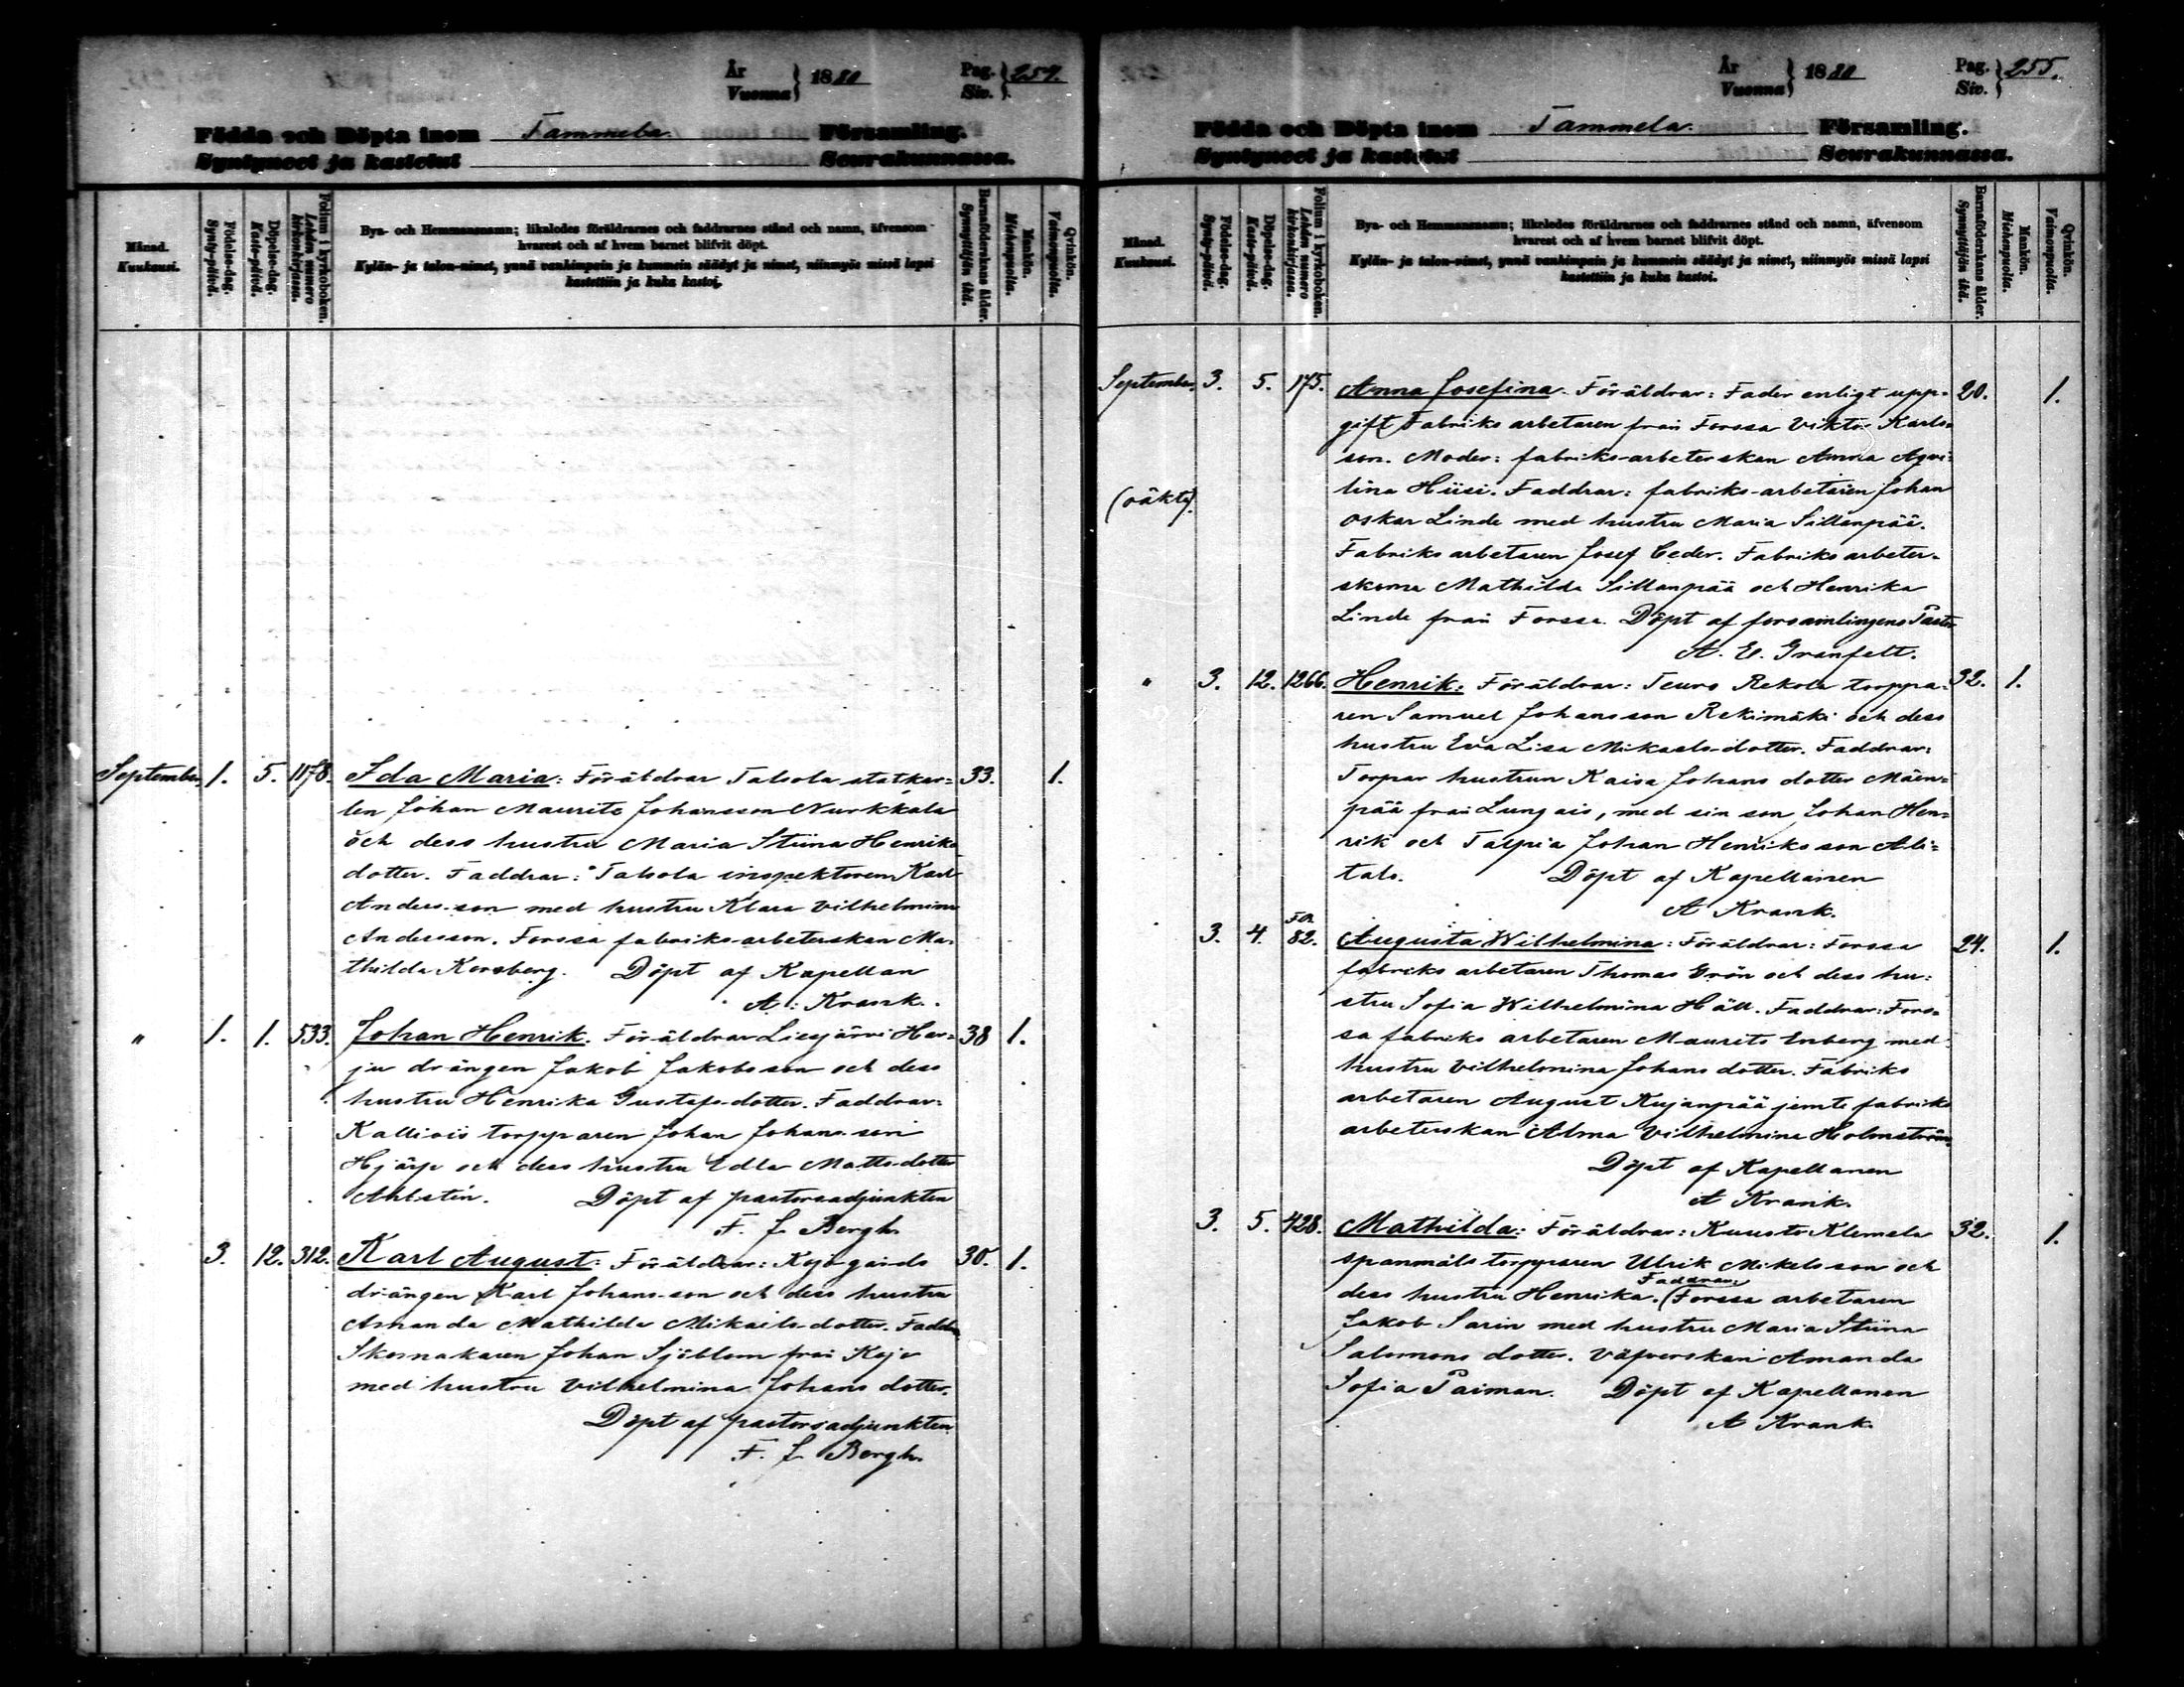 År
Vuonna } 1880
Pag.
Siv. } 254.
Födda och Döpta inom Tammela Församling.
Syntyneet ja kastetut Seurakunnassa.
Månad.
Kuukausi.
Födelse-dag.
Synty-päivä.
Döpelse-dag.
Kaste-päivä.
Folium i kyrkoboken.
Lehden numero kirkonkirjassa.
Bya- och Hemmansnamn; likaledes föräldrarnes och faddrarnes stånd och namn, äfvensom
hvarest och af hvem barnet blifvit döpt.
Kylän- ja talon-nimet, ynnä vanhimpain ja kummein säädyt ja nimet, niinmyös missä lapsi
kastettiin ja kuka kastoi.
Barnaföderskans ålder.
Synnyttäjän ikä.
Mankön.
Miehenpuolia.
Qvinkön.
Vaimonpuolia.
September. 1. 5. 1178. Ida Maria: Föräldrar Talsola statkar- 33. 1.
len Johan Maurits Johansson Nurkkala
och dess hustru Maria Stiina Henriks
dotter. Faddrar: Talsola inspektoren Karl
Anders-son med hustru Klara Vilhelmina
Andersson. Forssa fabriks-arbeterskan Ma-
thilda Korsberg. Döpt af Kapellan
A. Krank.
" 1. 1. 533. Johan Henrik. Föräldrar Liesjärvi Har- 38 1.
ju drängen Jakob Jakobsson och dess
hustru Henrika Gustafs-dotter. Faddrar:
Kallivis torpparen Johan Johans-son
Hjärp och dess hustru Edla Matts-dotter
Ahlstén. Döpt af pastorsadjunkten
F. J. Bergh.
3. 12. 312. Karl August: Föräldrar: Kojo gårds 30. 1.
drängen Karl Johans-son och dess hustru
Amanda Mathilda Mikaels-dotter. Faddr.
Skomakaren Johan Sjöblom från Kojo
med hustru Vilhelmina Johans dotter.
Döpt af pastorsadjunkten
F. J. Bergh.
År
Vuonna } 1880
Pag.
Siv. } 255.
Födda och Döpta inom Tammela. Församling.
Syntyneet ja kastetut Seurakunnassa.
Månad.
Kuukausi.
Födelse-dag.
Synty-päivä.
Döpelse-dag.
Kaste-päivä.
Folium i kyrkoboken.
Lehden numero kirkonkirjassa.
Bya- och Hemmansnamn; likaledes föräldrarnes och faddrarnes stånd och namn, äfvensom
hvarest och af hvem barnet blifvit döpt.
Kylän- ja talon-nimet, ynnä vanhimpain ja kummein säädyt ja nimet, niinmyös missä lapsi
kastettiin ja kuka kastoi.
Barnaföderskans ålder.
Synnyttäjän ikä.
Mankön.
Miehenpuolia.
Qvinkön.
Vaimonpuolia.
September. 3. 5. 175. Anna Josefina. Föräldrar: Fader enligt upp- 20. 1.
gift Fabriks arbetaren från Forssa Viktor Karls-
son. Moder: fabriks-arbeterskan Anna Aqvi-
lina Hiisi. Faddrar: fabriks-arbetaren Johan
(oäkta).
Oskar Linde med hustru Maria Sillanpää.
Fabriks arbetaren Josef Ceder. Fabriks arbeter-
skorna Mathilda Sillanpää och Henrika
Linde från Forssa. Döpt af församlingens Pastor
A. E. Granfelt.
" 3. 12. 1266. Henrik: Föräldrar: Teuro Rekola torppa- 32. 1.
ren Samuel Johansson Rekimäki och dess
hustru Eva Lisa Mikaels-dotter. Faddrar:
Torpar hustrun Kaisa Johans dotter Mäen-
pää från Lungais, med sin son Johan Hen-
rik och Talpia Johan Henriksson Ali-
talo. Döpt af Kapellanen
A Krank.
3. 4. Fa 82. Augusta Wilhelmina: Föräldrar: Forssa 24. 1.
fabriks arbetaren Thomas Grön och dess hu-
stru Sofia Wilhelmina Häll. Faddrar: Fors-
sa fabriks arbetaren Maurits Enberg med
hustru Vilhelmina Johans dotter. Fabriks
arbetaren August Kujanpää jemte fabriks
arbeterskan Alma Vilhelmina Holmström.
Döpt af Kapellanen
A Krank.
3. 5. 428. Mathilda: Föräldrar: Kuusto Klemela 32. 1.
spanmåls torpparen Ulrik Mikels son och
Faddrar:
dess hustru Henrika. (Forssa arbetaren
Jakob Sarin med hustru Maria Stiina
Salomons dotter. Väfverskan Amanda
Sofia Paiman. Döpt af Kapellanen
A Krank.